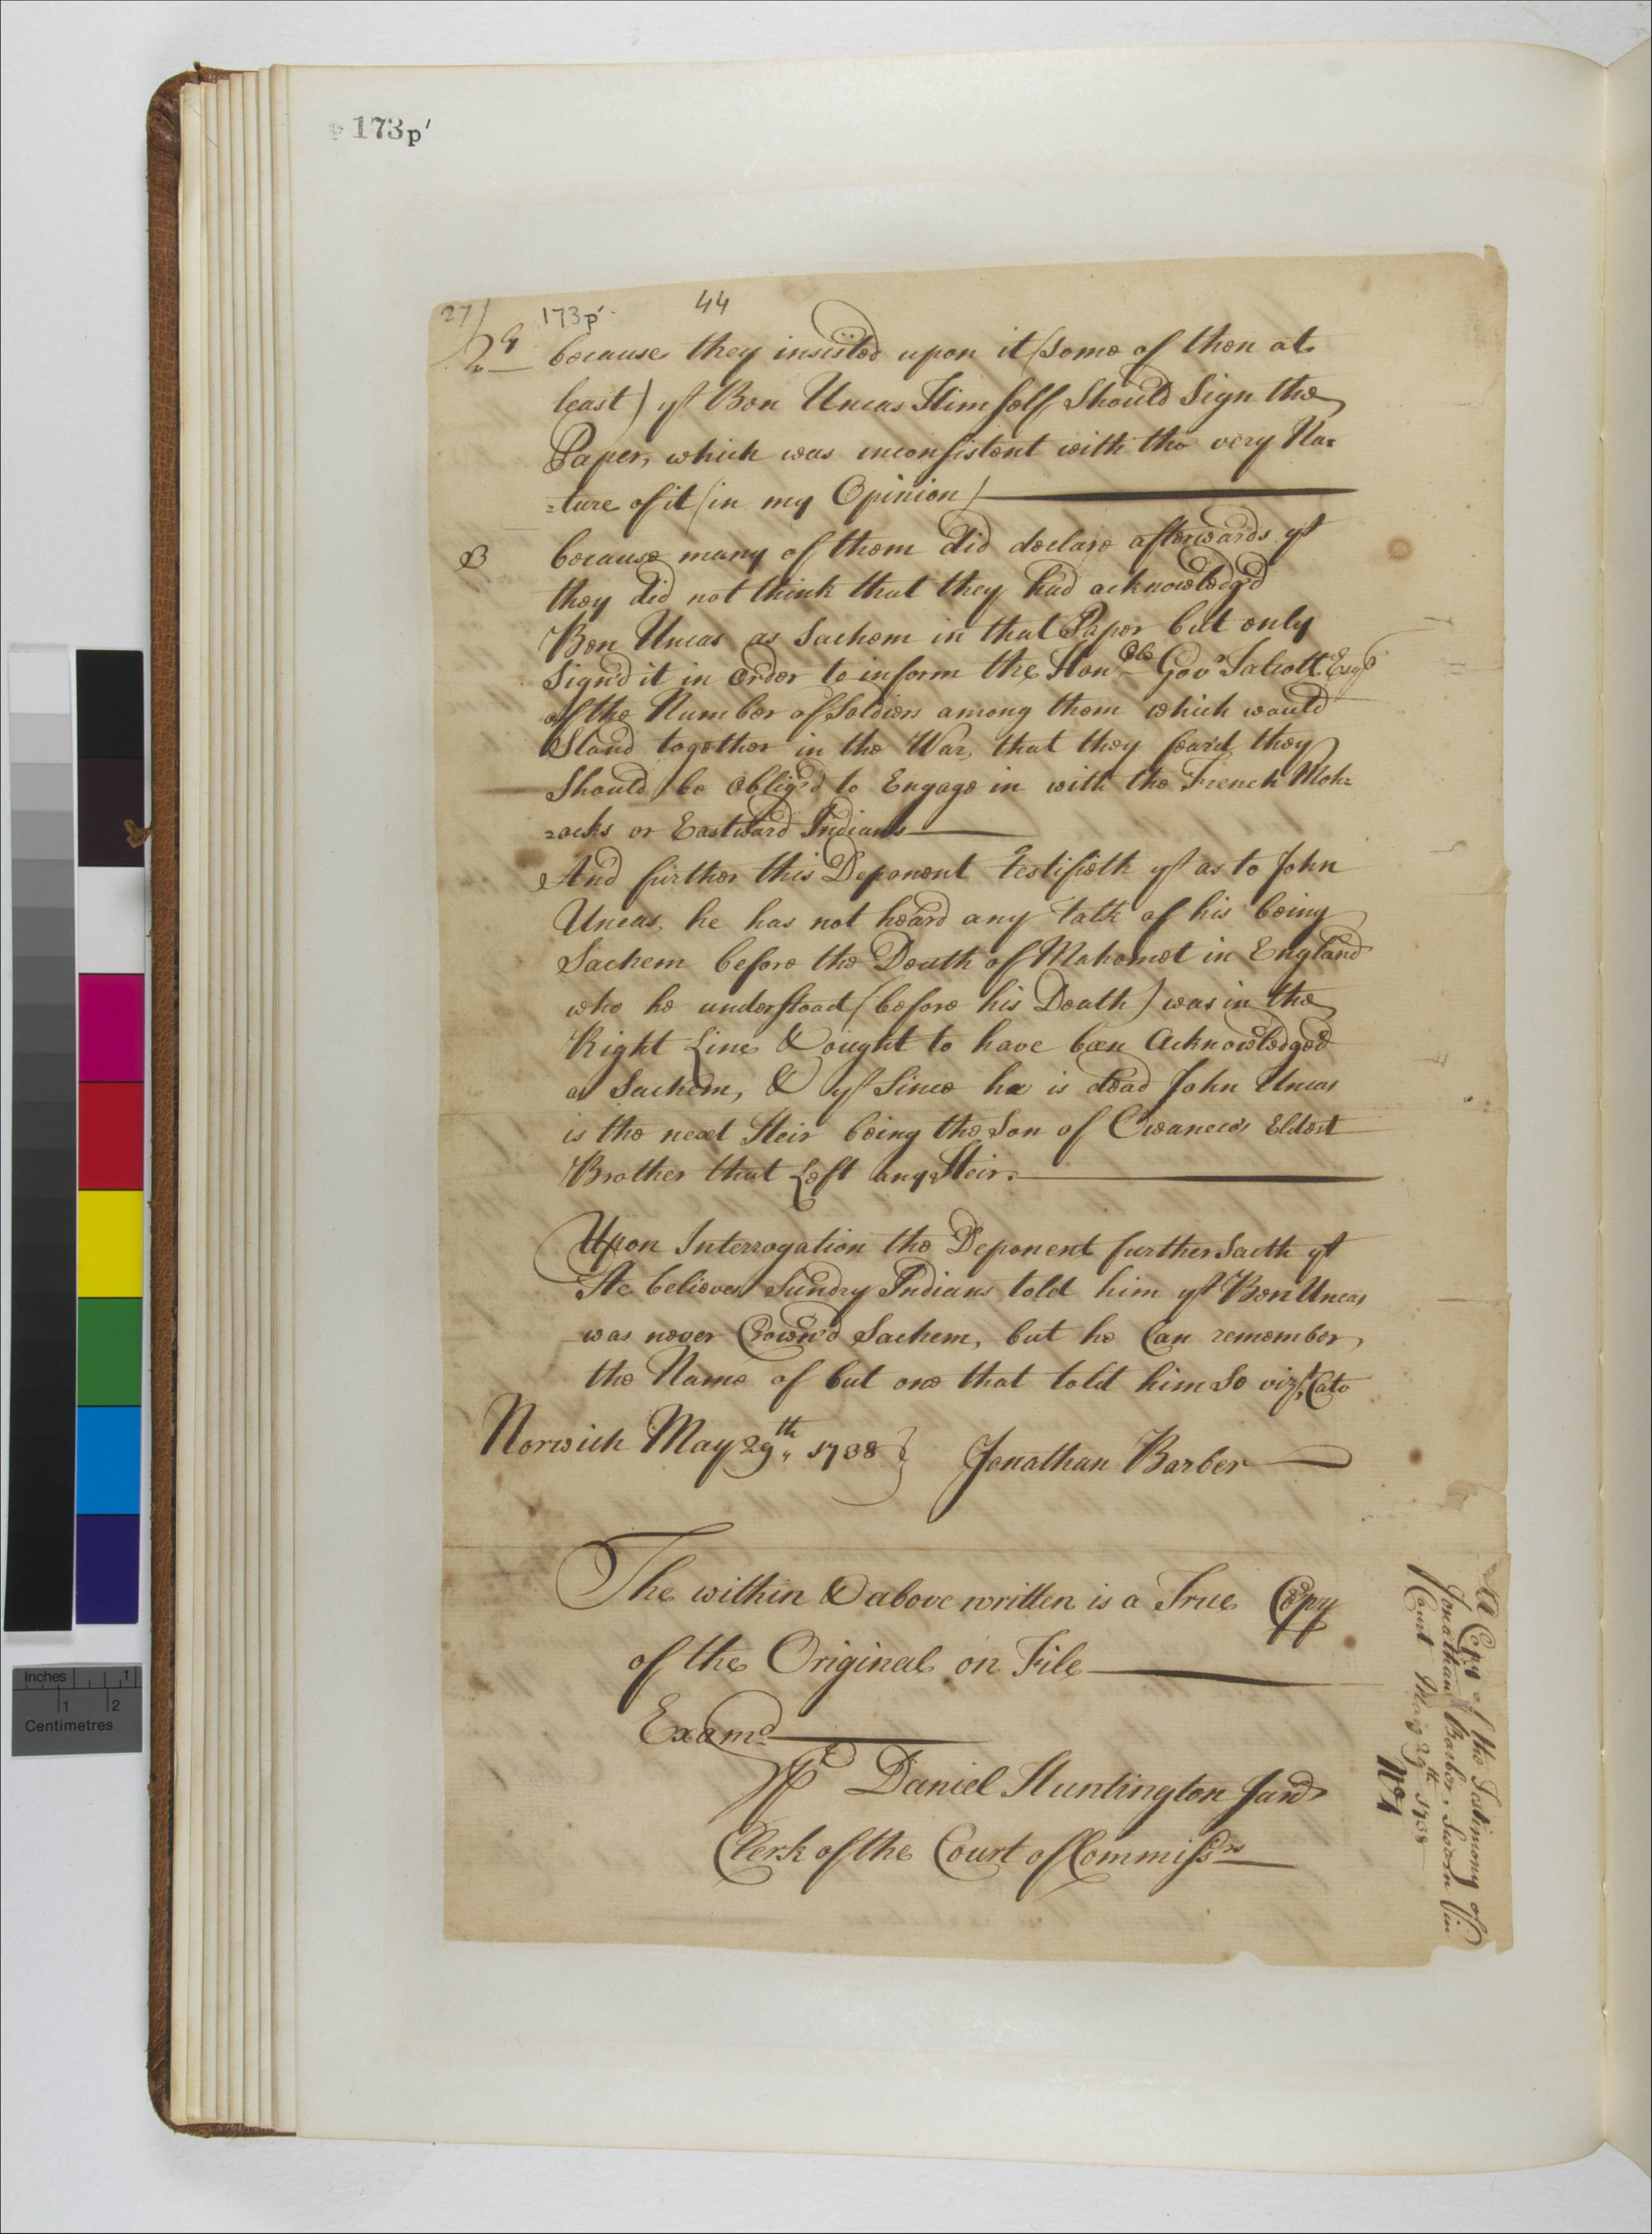 173p'
27)
173p'
44
2dly because they insisted upon it (some of them at
least) yt Ben Uncas Himself Should Sign the
Paper, which was inconsistent with the very Na=
=ture of it (in my Opinion)
3 because many of them did declare afterwards yt
they did not think that they had acknowledg'd
Ben Uncas as Sachem in that Paper but only
Sign'd it in Order to inform the Honble Govr Talcott Esqr
of the Number of Soldiers among them which would
Stand together in the War, that they fear'd they
Should be Oblig'd to Engage in with the French Moh=
=ocks or Eastward Indians
And further this Deponent Testifieth yt as to John
Uncas, he has not heard any talk of his being
Sachem before the Death of Mahomet in England
who he understood (before his Death) was in the
Right Line & ought to have been Acknowledged
as Sachem, & yt Since he is dead John Uncas
is the next Heir being the Son of Owaneco's Eldest
Brother that Left any Heir.
Upon Interrogation the Deponent further Saith yt
He believes Sundry Indians told him yt Ben Uncas
was never Crown'd Sachem, but he Can remember
the Name of but one that told him So vizt. Cato
Norwich May 29th, 1738} Jonathan Barber
The within & above written is a True Copy
of the Original on File
Examd
Pr Daniel Huntington Jun
Clerk of the Court of Commissrs
A Copy of the Testimony of
Jonathan Barber, Sworn in
Court May 29th 1738
No
Inches 1
1 2
Centimetres